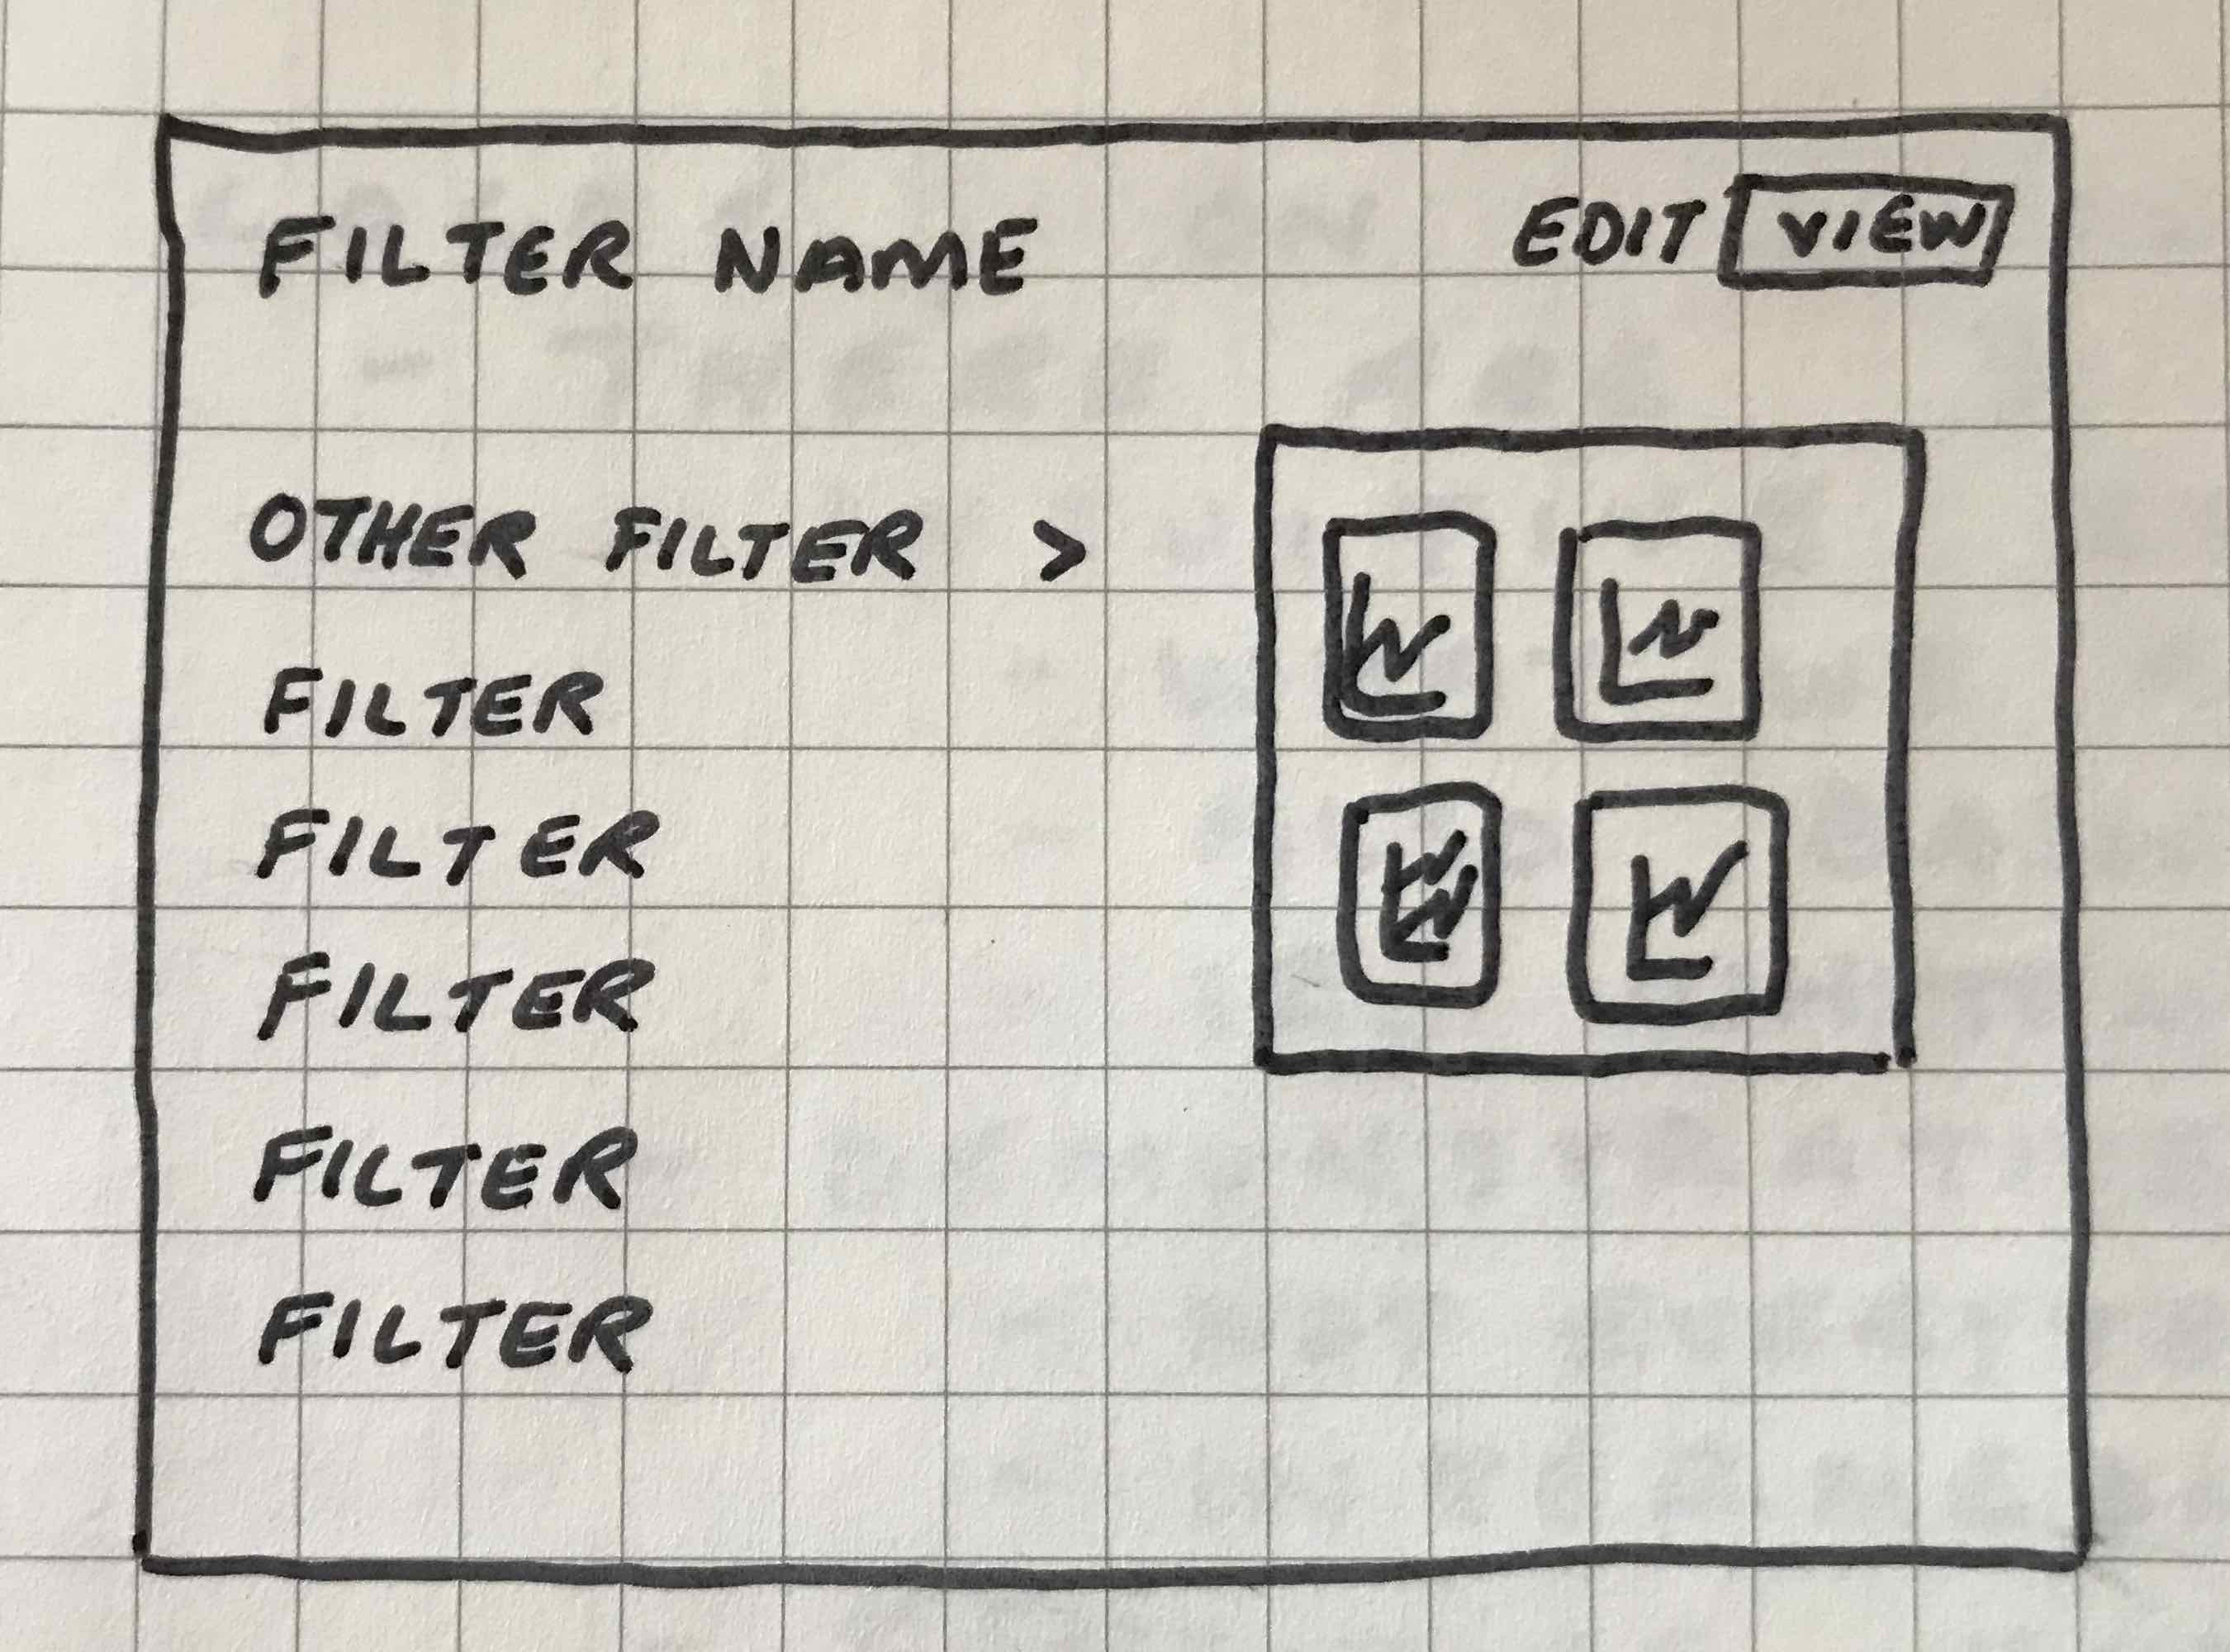 FILTER NAME
EDIT VIEW
OTHER FILTER >
FILTER
FILTER
FILTER
FILTER
FILTER